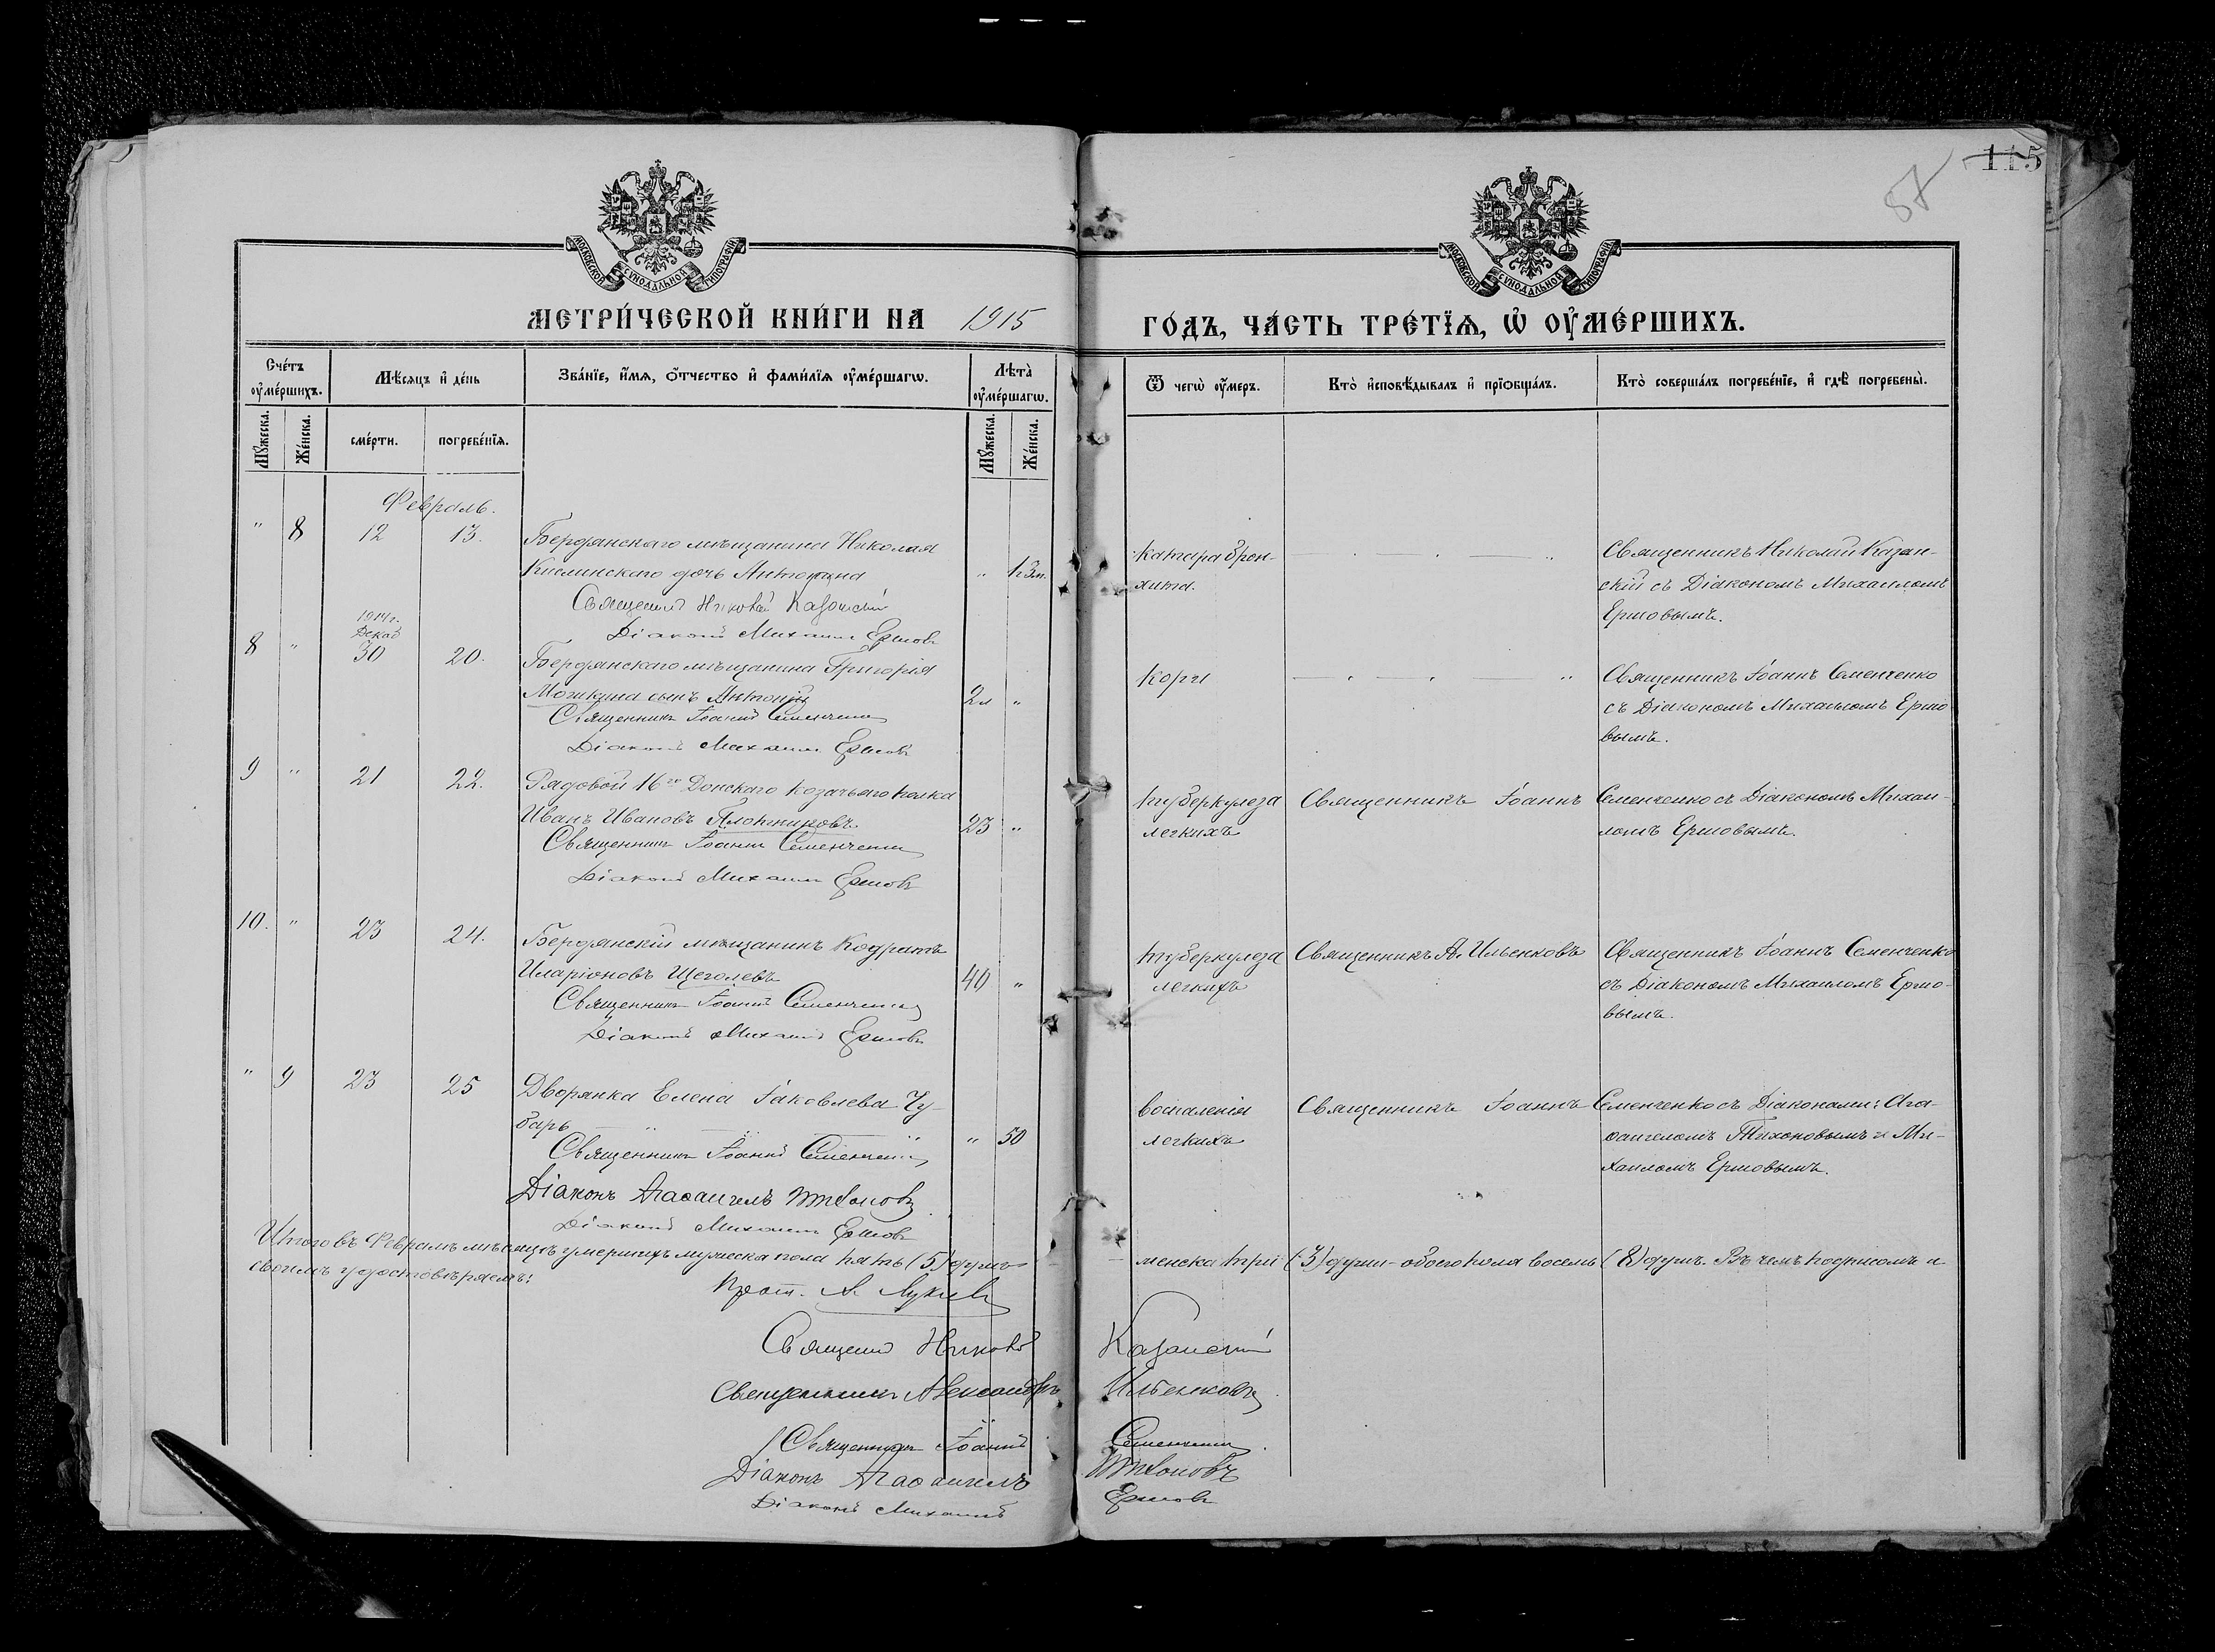 115
87
МОСКОВСКОЙ СѴНОДАЛЬНОЙ ТИПОГРАФІИ
МОСКОВСКОЙ СѴНОДАЛЬНОЙ ТИПОГРАФІИ
МЕТРИ́ЧЕСКОЙ КНИ́ГИ НА 1915
ГО́ДЪ, ЧА́СТЬ ТРЕ́ТЇѦ, Ѡ҆ ОУ҆МЕ́РШИХЪ.
Сче́тъ оу҆ме́ршихъ.
Мѣ́сяцъ и҆ де́нь
Зва́нїе, и҆́мѧ, ѻ҆́тчество и҆ фами́лїѧ оу҆ме́ршагѡ.
Лѣ́та̀ оу҆ме́ршагѡ.
Ѿ чегѡ̀ оу҆́меръ.
Кто̀ и҆сповѣ́дывалъ и҆ прїѻбща́лъ.
Кто̀ соверша́лъ погребе́нїе, и҆ гдѣ̀ погребены̀.
Мꙋ́жеска.
Же́нска.
сме́рти.
погребе́нїѧ.
Мꙋ́жеска.
Же́нска.
Февраль.
" 8 12 13. Бердянскаго мѣщанина Николая
Кислинскаго дочь Антонина " 1г.3м.
Священникъ Николай Казанскій
Діаконъ Михаилъ Ершовъ
Катара брон-
хита.
Священникъ Николай Казан-
скій съ Діакономъ Михаиломъ
Ершовымъ.
1914г.
Декаб
8 " 30 20. Бердянскаго мѣщанина Григорія
сынъ Антоній 2л "
Священникъ Іоаннъ Семенченко
Діаконъ Михаилъ Ершовъ
Кори
Священникъ Іоаннъ Семенченко
съ Діакономъ Михаиломъ Ершо
вымъ.
9 " 21 22. Рядовой 16го Донскаго козачьяго полка
Иванъ Ивановъ Плотниковъ 23 "
Священникъ Іоаннъ Семенченко
Діаконъ Михаилъ Ершовъ
туберкулеза
легкихъ
Священникъ Іоаннъ Семенченко съ Діакономъ Михаи-
ломъ Ершовымъ.
10. " 23 24. Бердянскій мѣщанинъ Кодратъ
Иларіоновъ Щеголевъ 40 "
Священникъ Іоаннъ Семенченко
Діаконъ Михаилъ Ершовъ
туберкулеза
легкихъ
Священникъ А. Ильенковъ
Священникъ Іоаннъ Семенченко
съ Діакономъ Михаиломъ Ершо-
вымъ.
" 9 23 25 Дворянка Елена Іаковлева Чу-
барь " 50
Священникъ Іоаннъ Семенченко
Діаконъ Агаѳангелъ Тихоновъ
Діаконъ Михаилъ Ершовъ
воспаленія
легкихъ
Священникъ Іоаннъ Семенченко съ Діаконами: Ага-
ѳангеломъ Тихоновымъ и Ми-
хаиломъ Ершовымъ.
Итого въ Февралѣ мѣсяцѣ умершихъ мужеска пола пять (5) душъ женска три (3) души - обоего пола восемь (8) душъ. Въ чемъ подписомъ и
своимъ удостовѣряемъ:
Прот. А.
Священникъ Николай Казанскій
Священникъ Александръ Ильенковъ
Священникъ Іоаннъ Семенченко
Діаконъ Агаѳангелъ Тихоновъ
Діаконъ Михаилъ Ершовъ